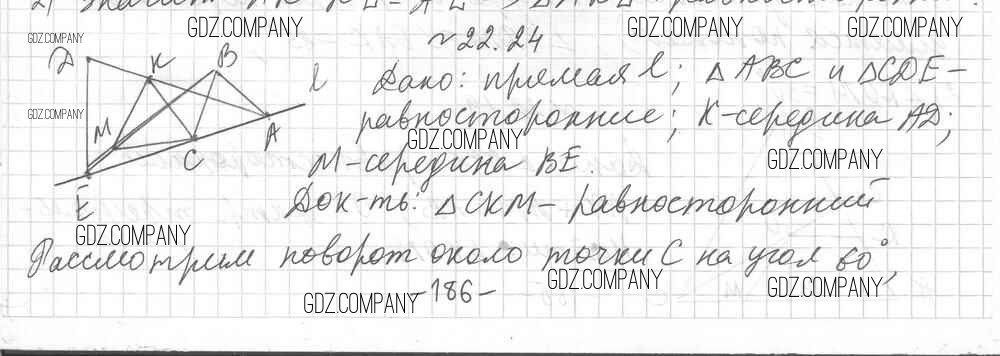 GDZ.COMPANY GDZ.COMPANY GDZ.COMPANY
GDZ.COMPANY
№22.24
D K B l
Дано: прямая l; △ABC и △CDE-
GDZ.COMPANY
M A
равносторонние; K-середина AD;
GDZ.COMPANY
C
M-середина BE.
GDZ.COMPANY
E
Док-ть: △CKM- равносторонний
GDZ.COMPANY
Рассмотрим поворот около точки C на угол 60°,
GDZ.COMPANY GDZ.COMPANY
GDZ.COMPANY
-186-